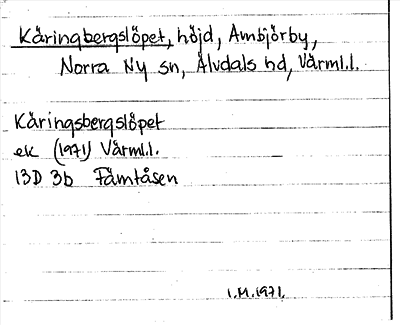 Kåringbergslöpet, höjd, Ambjörby,
Norra Ny sn, Älvdals hd, Värml.l.
Kåringsbergslöpet
ek (1971) Värml.l.
13D 3b Fämtåsen
I.M.1971.